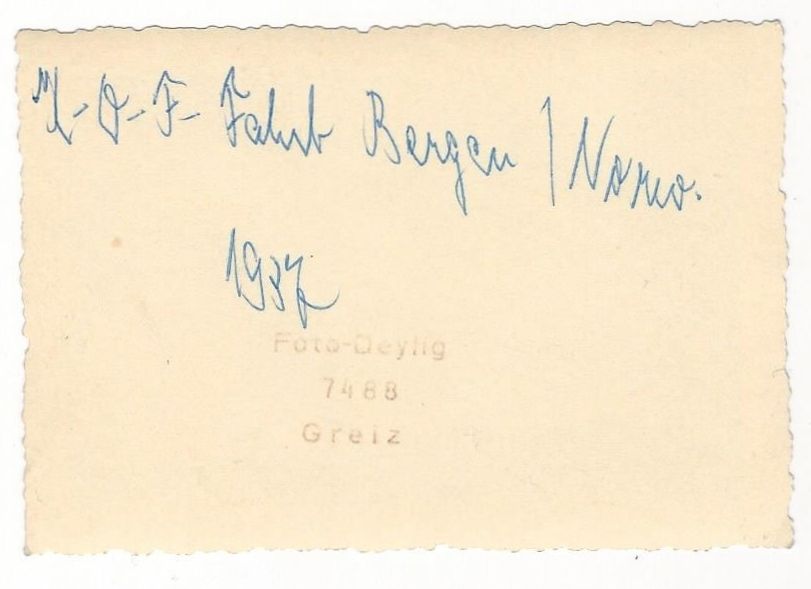 K-d-F- Fahrt Bergen / Norw.
1937
Foto-Deylig
7488
Greiz